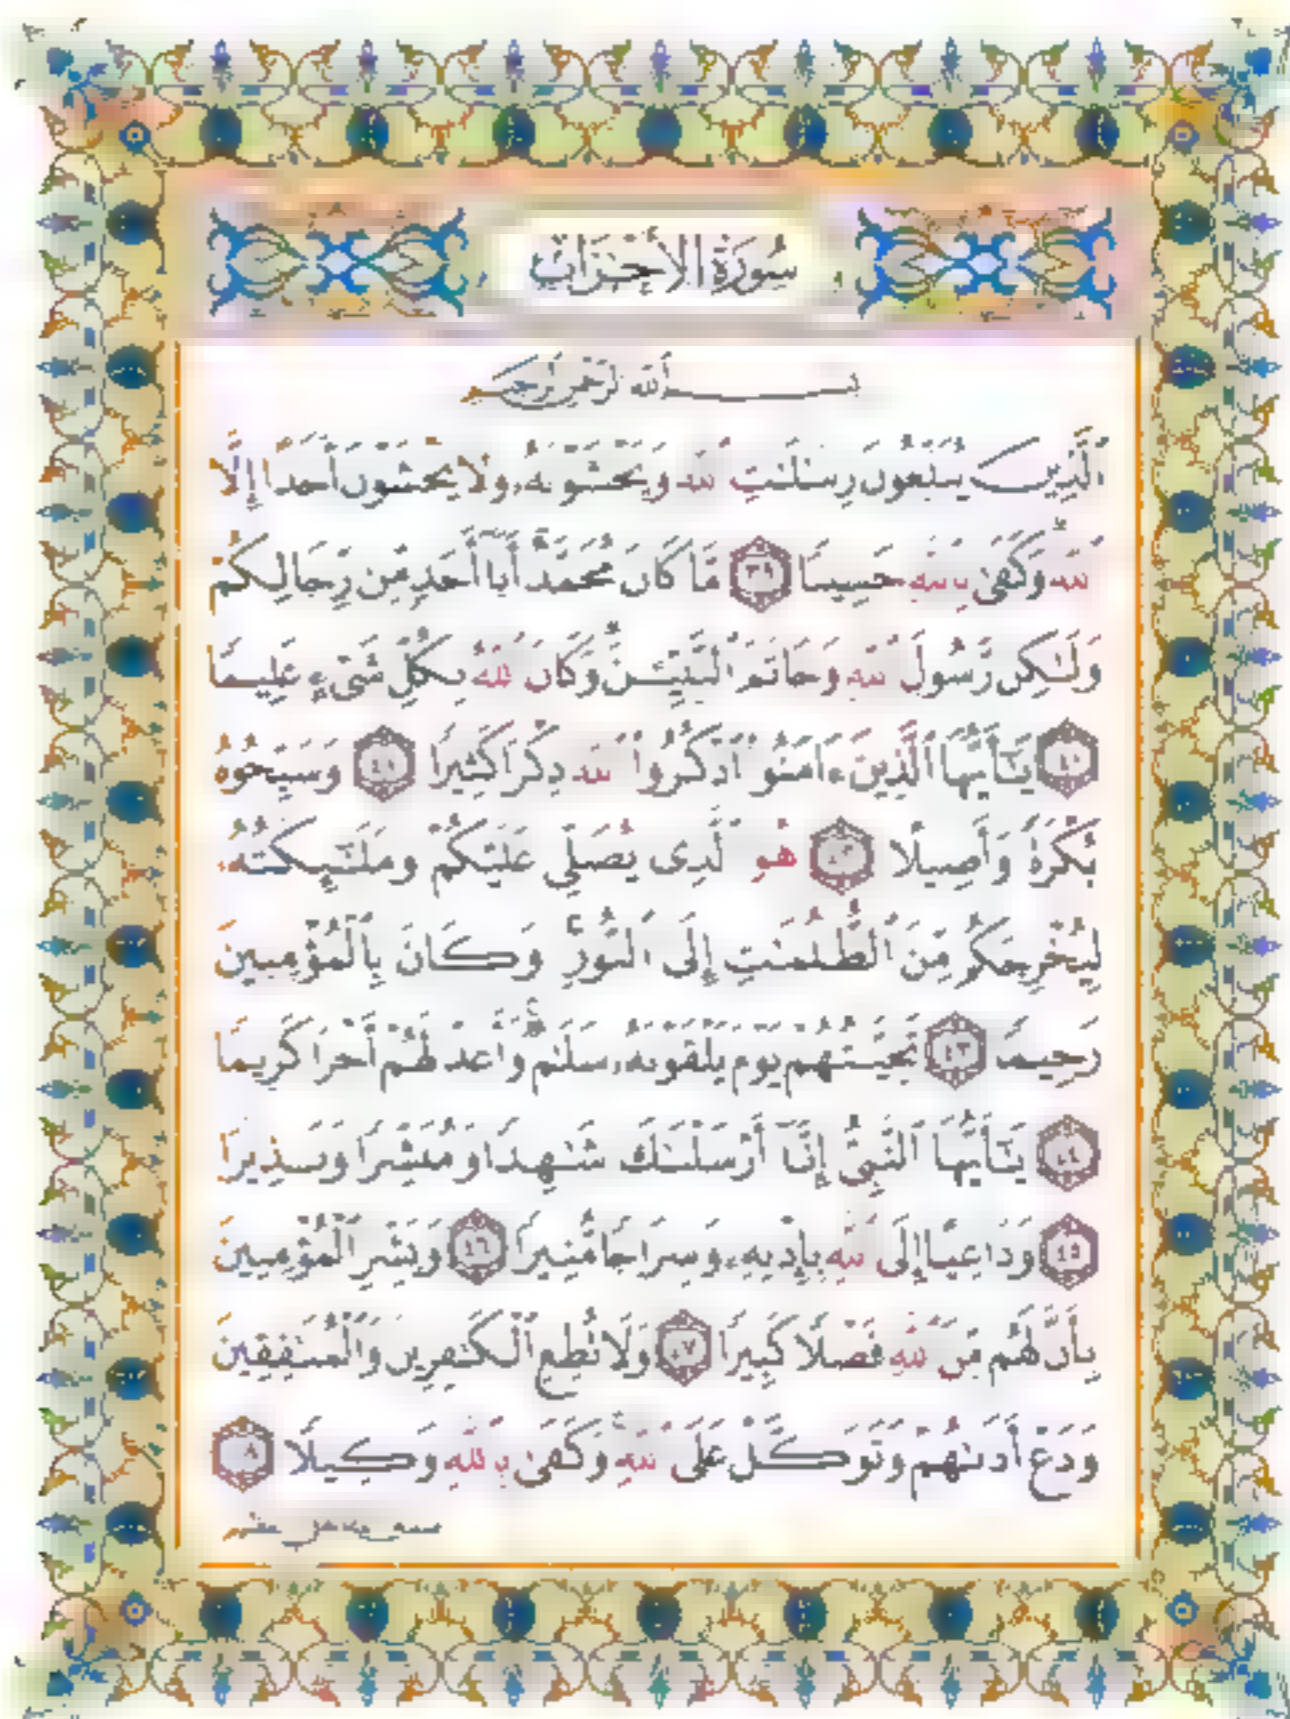 سُورَةُ الأَحْزَابِ
بِسْمِ ٱللَّهِ ٱلرَّحْمَٰنِ ٱلرَّحِيمِ
ٱلَّذِينَ يُبَلِّغُونَ رِسَٰلَٰتِ ٱللَّهِ وَيَخْشَوْنَهُۥ وَلَا يَخْشَوْنَ أَحَدًا إِلَّا
ٱللَّهَ ۗ وَكَفَىٰ بِٱللَّهِ حَسِيبًا ٣٩ مَّا كَانَ مُحَمَّدٌ أَبَآ أَحَدٍ مِّن رِّجَالِكُمْ
وَلَٰكِن رَّسُولَ ٱللَّهِ وَخَاتَمَ ٱلنَّبِيِّـۧنَ ۗ وَكَانَ ٱللَّهُ بِكُلِّ شَىْءٍ عَلِيمًا
٤٠ يَٰٓأَيُّهَا ٱلَّذِينَ ءَامَنُوا۟ ٱذْكُرُوا۟ ٱللَّهَ ذِكْرًا كَثِيرًا ٤١ وَسَبِّحُوهُ
بُكْرَةً وَأَصِيلًا ٤٢ هُوَ ٱلَّذِى يُصَلِّى عَلَيْكُمْ وَمَلَٰٓئِكَتُهُۥ
لِيُخْرِجَكُم مِّنَ ٱلظُّلُمَٰتِ إِلَى ٱلنُّورِ ۚ وَكَانَ بِٱلْمُؤْمِنِينَ
رَحِيمًا ٤٣ تَحِيَّتُهُمْ يَوْمَ يَلْقَوْنَهُۥ سَلَٰمٌ ۚ وَأَعَدَّ لَهُمْ أَجْرًا كَرِيمًا
٤٤ يَٰٓأَيُّهَا ٱلنَّبِىُّ إِنَّآ أَرْسَلْنَٰكَ شَٰهِدًا وَمُبَشِّرًا وَنَذِيرًا
٤٥ وَدَاعِيًا إِلَى ٱللَّهِ بِإِذْنِهِۦ وَسِرَاجًا مُّنِيرًا ٤٦ وَبَشِّرِ ٱلْمُؤْمِنِينَ
بِأَنَّ لَهُم مِّنَ ٱللَّهِ فَضْلًا كَبِيرًا ٤٧ وَلَا تُطِعِ ٱلْكَٰفِرِينَ وَٱلْمُنَٰفِقِينَ
وَدَعْ أَذَىٰهُمْ وَتَوَكَّلْ عَلَى ٱللَّهِ ۚ وَكَفَىٰ بِٱللَّهِ وَكِيلًا ٤٨